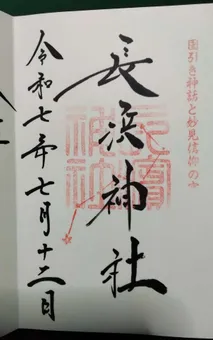 国引き神話と妙見信仰の宮
長浜神社
長濱神社
令和七年七月十二日